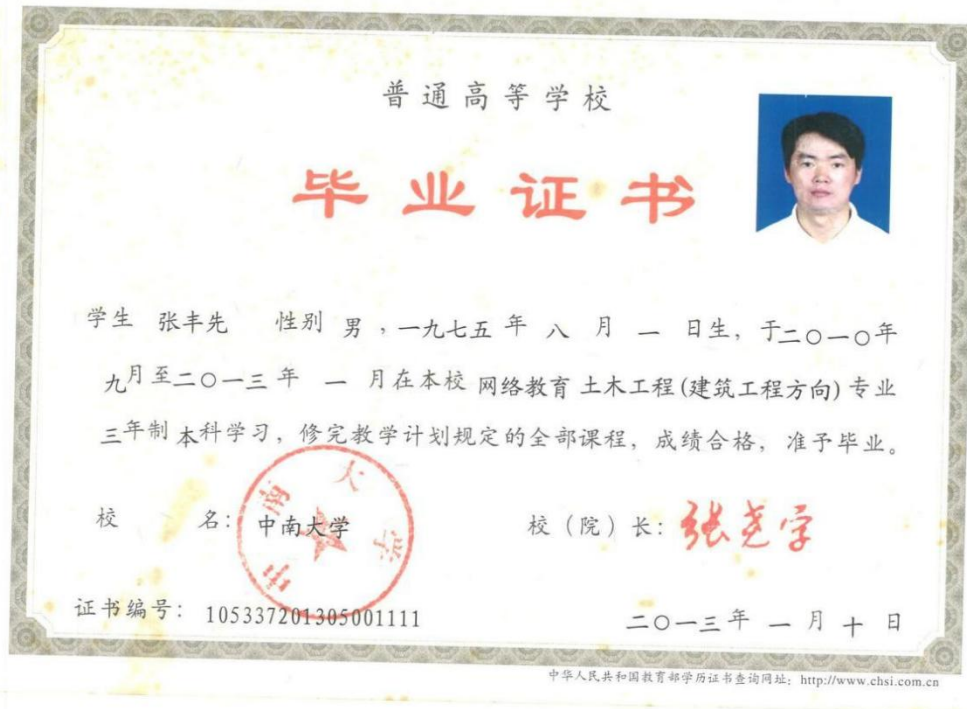 普通高等学校
毕业证书
学生 张丰先 性别 男 ，一九七五 年 八 月 一 日生，于二〇一〇年
九月至二〇一三 年 一 月在本校 网络教育 土木工程(建筑工程方向) 专业
三年制 本科学习，修完教学计划规定的全部课程，成绩合格，准予毕业。
校 名： 中南大学
中南大学
校（院）长：张尧学
证书编号： 105337201305001111
二〇一三年 一 月 十 日
中华人民共和国教育部学历证书查询网址：http://www.chsi.com.cn